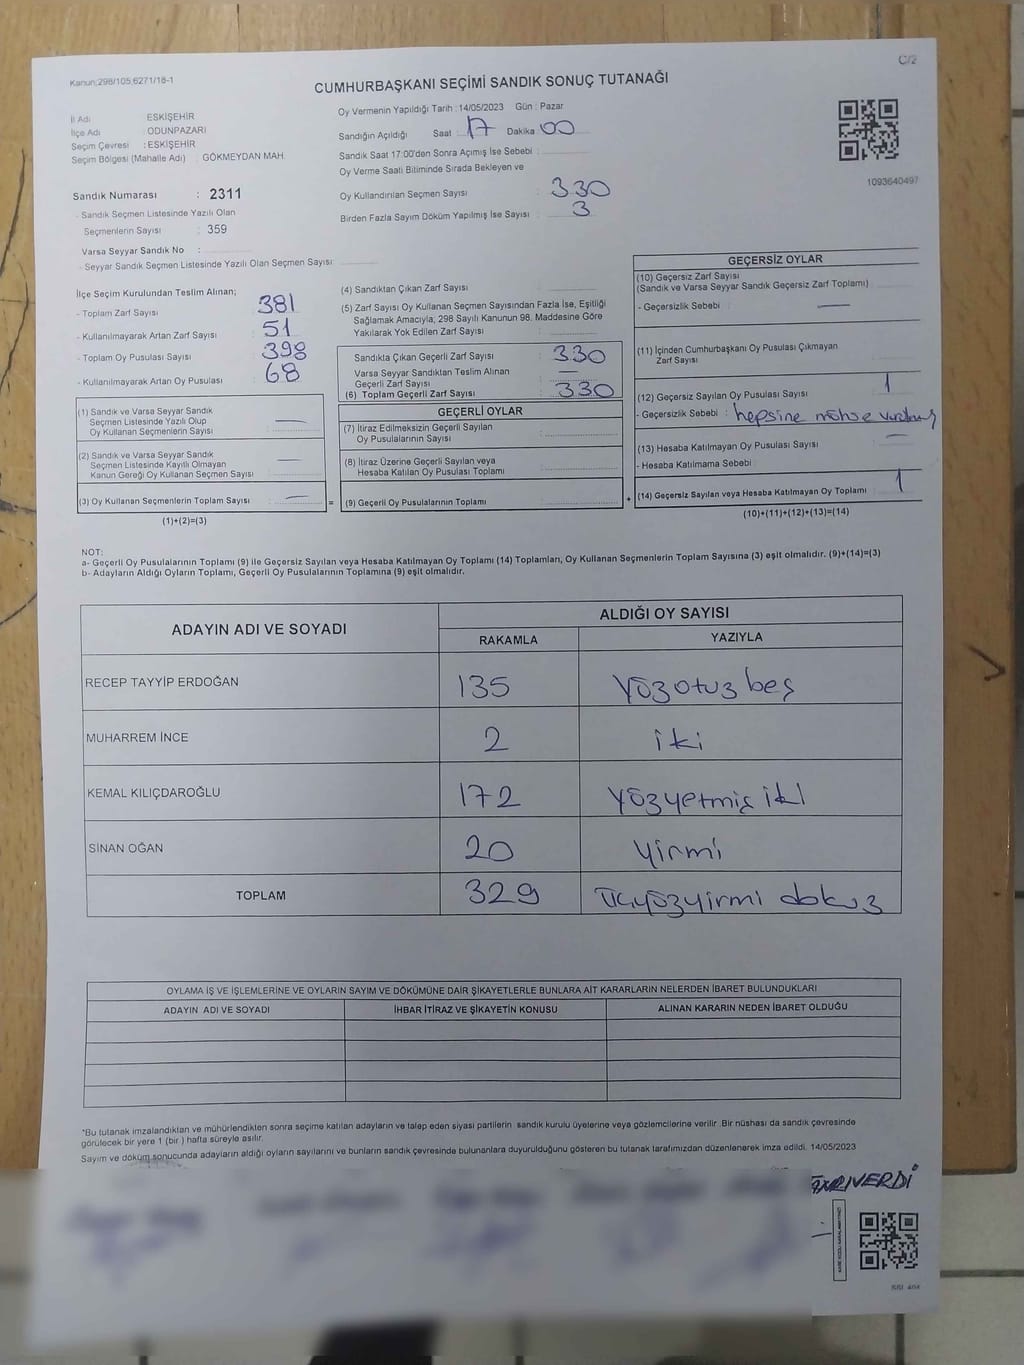 Kanun;298/105,6271/18-1
C/2
CUMHURBAŞKANI SEÇİMİ SANDIK SONUÇ TUTANAĞI
İl Adı ESKİŞEHİR
İlçe Adı : ODUNPAZARI
Seçim Çevresi : ESKİŞEHİR
Seçim Bölgesi (Mahalle Adı) : GÖKMEYDAN MAH.
Sandık Numarası : 2311
- Sandık Seçmen Listesinde Yazılı Olan
Seçmenlerin Sayısı : 359
Varsa Seyyar Sandık No :
- Seyyar Sandık Seçmen Listesinde Yazılı Olan Seçmen Sayısı:
Oy Vermenin Yapıldığı Tarih : 14/05/2023 Gün : Pazar
Sandığın Açıldığı Saat : 17 Dakika 00
Sandık Saat 17:00'den Sonra Açımış İse Sebebi :
Oy Verme Saati Bitiminde Sırada Bekleyen ve
Oy Kullandırılan Seçmen Sayısı : 330
Birden Fazla Sayım Döküm Yapılmış İse Sayısı : 3
1093640497
İlçe Seçim Kurulundan Teslim Alınan;
- Toplam Zarf Sayısı : 381
- Kullanılmayarak Artan Zarf Sayısı : 51
- Toplam Oy Pusulası Sayısı : 398
- Kullanılmayarak Artan Oy Pusulası : 68
(1) Sandık ve Varsa Seyyar Sandık
Seçmen Listesinde Yazılı Olup
Oy Kullanan Seçmenlerin Sayısı : —
(2) Sandık ve Varsa Seyyar Sandık
Seçmen Listesinde Kayıtlı Olmayan
Kanun Gereği Oy Kullanan Seçmen Sayısı : —
(3) Oy Kullanan Seçmenlerin Toplam Sayısı : — =
(1)+(2)=(3)
(4) Sandıktan Çıkan Zarf Sayısı :
(5) Zarf Sayısı Oy Kullanan Seçmen Sayısından Fazla İse, Eşitliği
Sağlamak Amacıyla; 298 Sayılı Kanunun 98. Maddesine Göre
Yakılarak Yok Edilen Zarf Sayısı :
Sandıkta Çıkan Geçerli Zarf Sayısı : 330
Varsa Seyyar Sandıktan Teslim Alınan
Geçerli Zarf Sayısı : —
(6) Toplam Geçerli Zarf Sayısı : 330
GEÇERLİ OYLAR
(7) İtiraz Edilmeksizin Geçerli Sayılan
Oy Pusulalarının Sayısı :
(8) İtiraz Üzerine Geçerli Sayılan veya
Hesaba Katılan Oy Pusulası Toplamı :
(9) Geçerli Oy Pusulalarının Toplamı : +
GEÇERSİZ OYLAR
(10) Geçersiz Zarf Sayısı
(Sandık ve Varsa Seyyar Sandık Geçersiz Zarf Toplamı)
- Geçersizlik Sebebi : —
(11) İçinden Cumhurbaşkanı Oy Pusulası Çıkmayan
Zarf Sayısı
(12) Geçersiz Sayılan Oy Pusulası Sayısı : 1
- Geçersizlik Sebebi : hepsine
(13) Hesaba Katılmayan Oy Pusulası Sayısı : —
- Hesaba Katılmama Sebebi
(14) Geçersiz Sayılan veya Hesaba Katılmayan Oy Toplamı : 1
(10)+(11)+(12)+(13)=(14)
NOT:
a- Geçerli Oy Pusulalarının Toplamı (9) ile Geçersiz Sayılan veya Hesaba Katılmayan Oy Toplamı (14) Toplamları, Oy Kullanan Seçmenlerin Toplam Sayısına (3) eşit olmalıdır. (9)+(14)=(3)
b- Adayların Aldığı Oyların Toplamı, Geçerli Oy Pusulalarının Toplamına (9) eşit olmalıdır.
ADAYIN ADI VE SOYADI ALDIĞI OY SAYISI
RAKAMLA YAZIYLA
RECEP TAYYİP ERDOĞAN 135 Yüzotuz beş
MUHARREM İNCE 2 iki
KEMAL KILIÇDAROĞLU 172 Yüzyetmiş iki
SİNAN OĞAN 20 yirmi
TOPLAM 329 üçyüzyirmi dokuz
OYLAMA İŞ VE İŞLEMLERİNE VE OYLARIN SAYIM VE DÖKÜMÜNE DAİR ŞİKAYETLERLE BUNLARA AİT KARARLARIN NELERDEN İBARET BULUNDUKLARI
ADAYIN ADI VE SOYADI İHBAR İTİRAZ VE ŞİKAYETİN KONUSU ALINAN KARARIN NEDEN İBARET OLDUĞU
*Bu tutanak imzalandıktan ve mühürlendikten sonra seçime katılan adayların ve talep eden siyasi partilerin sandık kurulu üyelerine veya gözlemcilerine verilir .Bir nüshası da sandık çevresinde
görülecek bir yere 1 (bir ) hafta süreyle asılır.
Sayım ve döküm sonucunda adayların aldığı oyların sayılarını ve bunların sandık çevresinde bulunanlara duyurulduğunu gösteren bu tutanak tarafımızdan düzenlenerek imza edildi. 14/05/2023